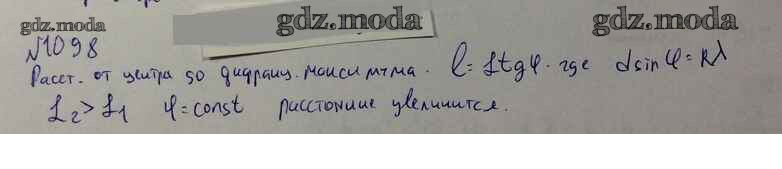 gdz.moda gdz.moda gdz.moda
№1098
Расст. от центра до дифракц. максимума. l = Ltgφ. где dsinφ = kλ
L₂ > L₁ φ = const расстояние увеличится.